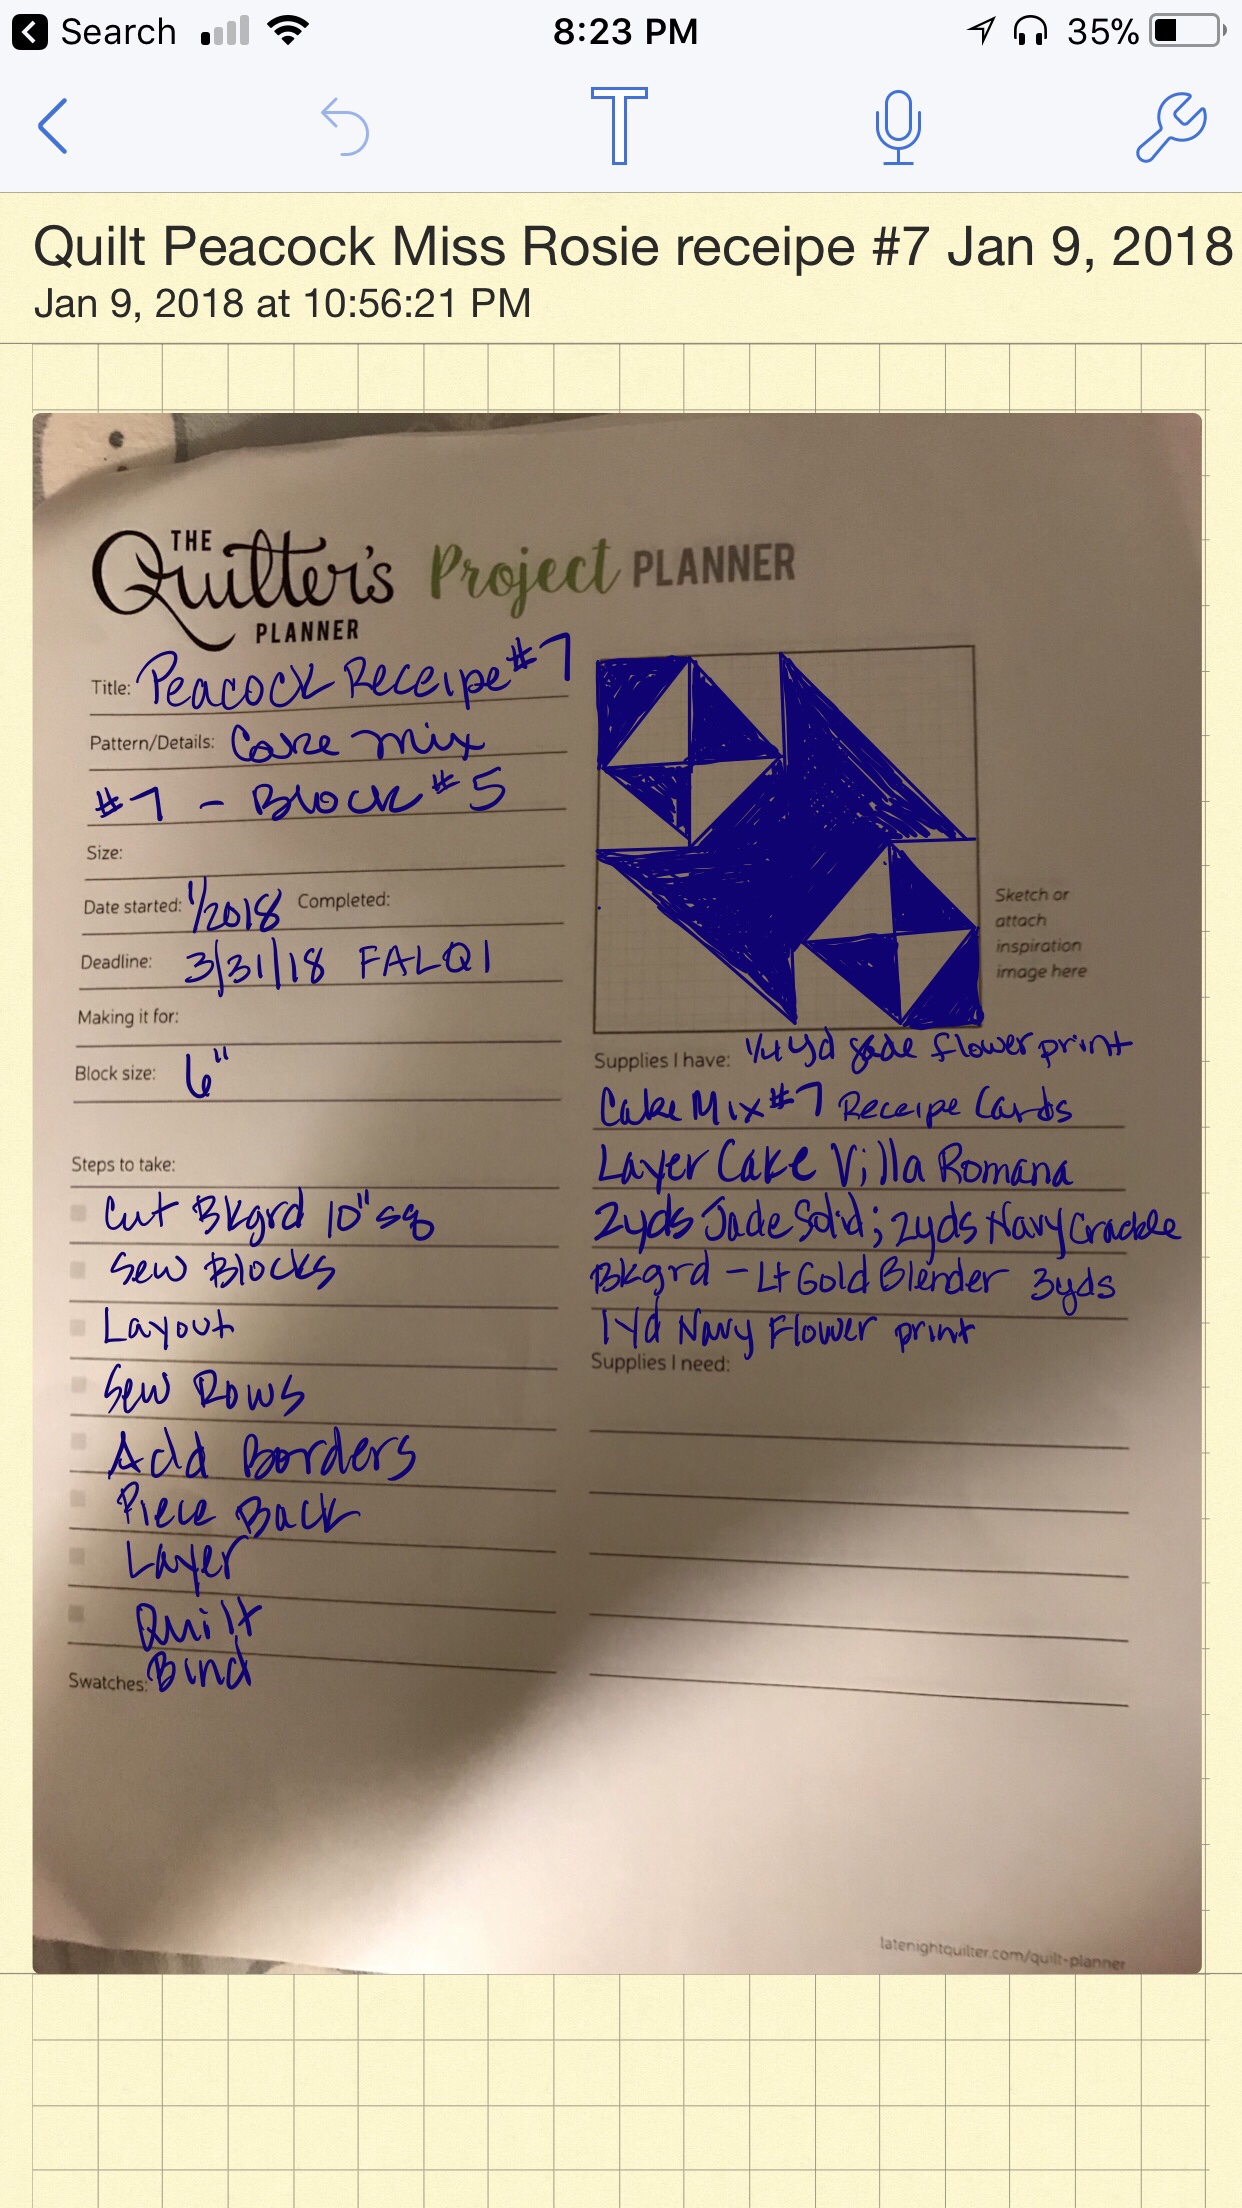 Search
8:23 PM
35%
Quilt Peacock Miss Rosie receipe #7 Jan 9, 2018
Jan 9, 2018 at 10:56:21 PM
THE Quilter's PLANNER Project PLANNER
Title: Peacock Receipe #7
Pattern/Details: Cake mix
#7 - Block #5
Size:
Date started: 1/2018 Completed:
Deadline: 3/31/18 FALQ1
Making it for:
Block size: 6"
Sketch or
attach
inspiration
image here
Steps to take:
Cut Bkgrd 10" sq
Sew Blocks
Layout
Sew Rows
Add Borders
Piece Back
Layer
Quilt
Bind
Swatches:
Supplies I have: 1/4 yd jade flower print
Cake Mix #7 Receipe Cards
Layer Cake Villa Romana
2yds Jade Solid; 2yds Navy Crackle
Bkgrd - Lt Gold Blender 3yds
1yd Navy Flower print
Supplies I need:
latenightquilter.com/quilt-planner